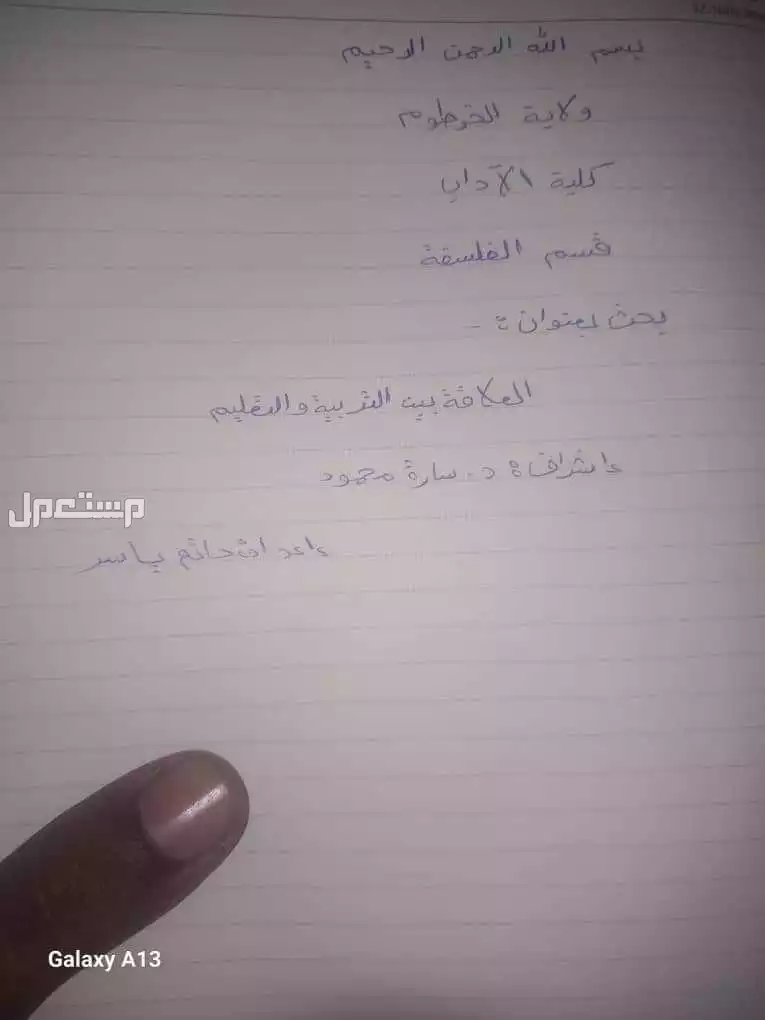 بسم الله الرحمن الرحيم
ولاية الخرطوم
كلية الآداب
قسم الفلسفة
بحث بعنوان :-
العلاقة بين التربية والتعليم
إشراف : د. سارة محمود
مستعمل
حاتم ياسر
Galaxy A13